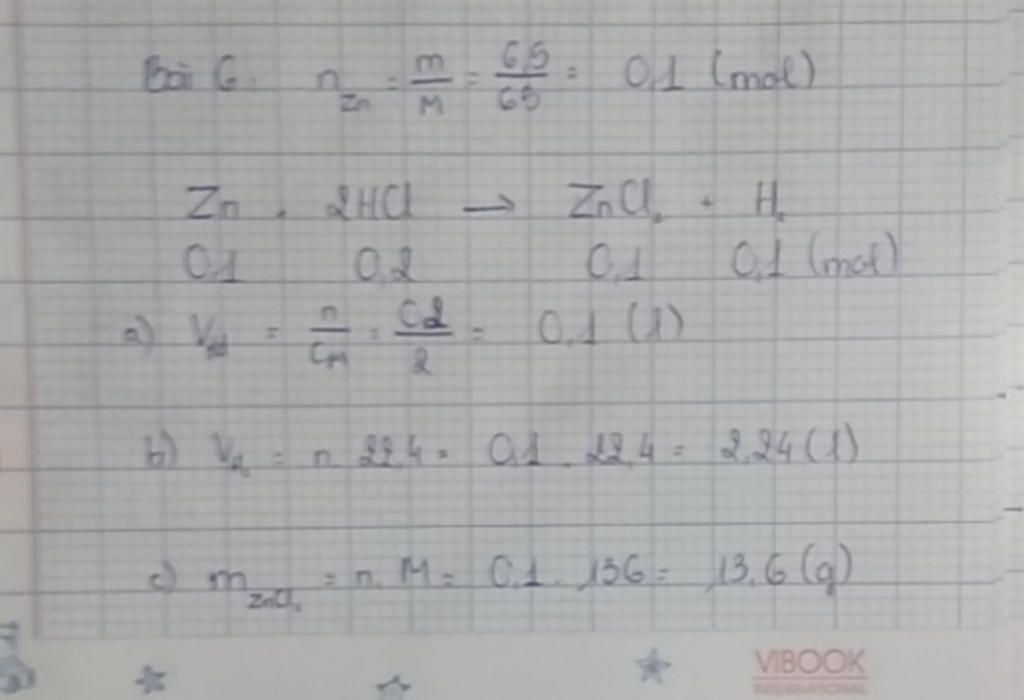 Bài 6. n Zn = m/M = 6,5/65 = 0,1 (mol)
Zn + 2HCl → ZnCl₂ + H₂
0,1 0,2 0,1 0,1 (mol)
a) V = n/CM = 0,2/2 = 0,1 (l)
b) V = n. 22,4 = 0,1 . 22,4 = 2,24 (l)
c) m ZnCl₂ = n. M = 0,1 . 136 = 13,6 (g)
VIBOOK
INTERNATIONAL